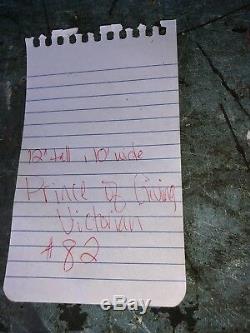 12" tall, 10" wide
Prince of Giving
Victorian
#82